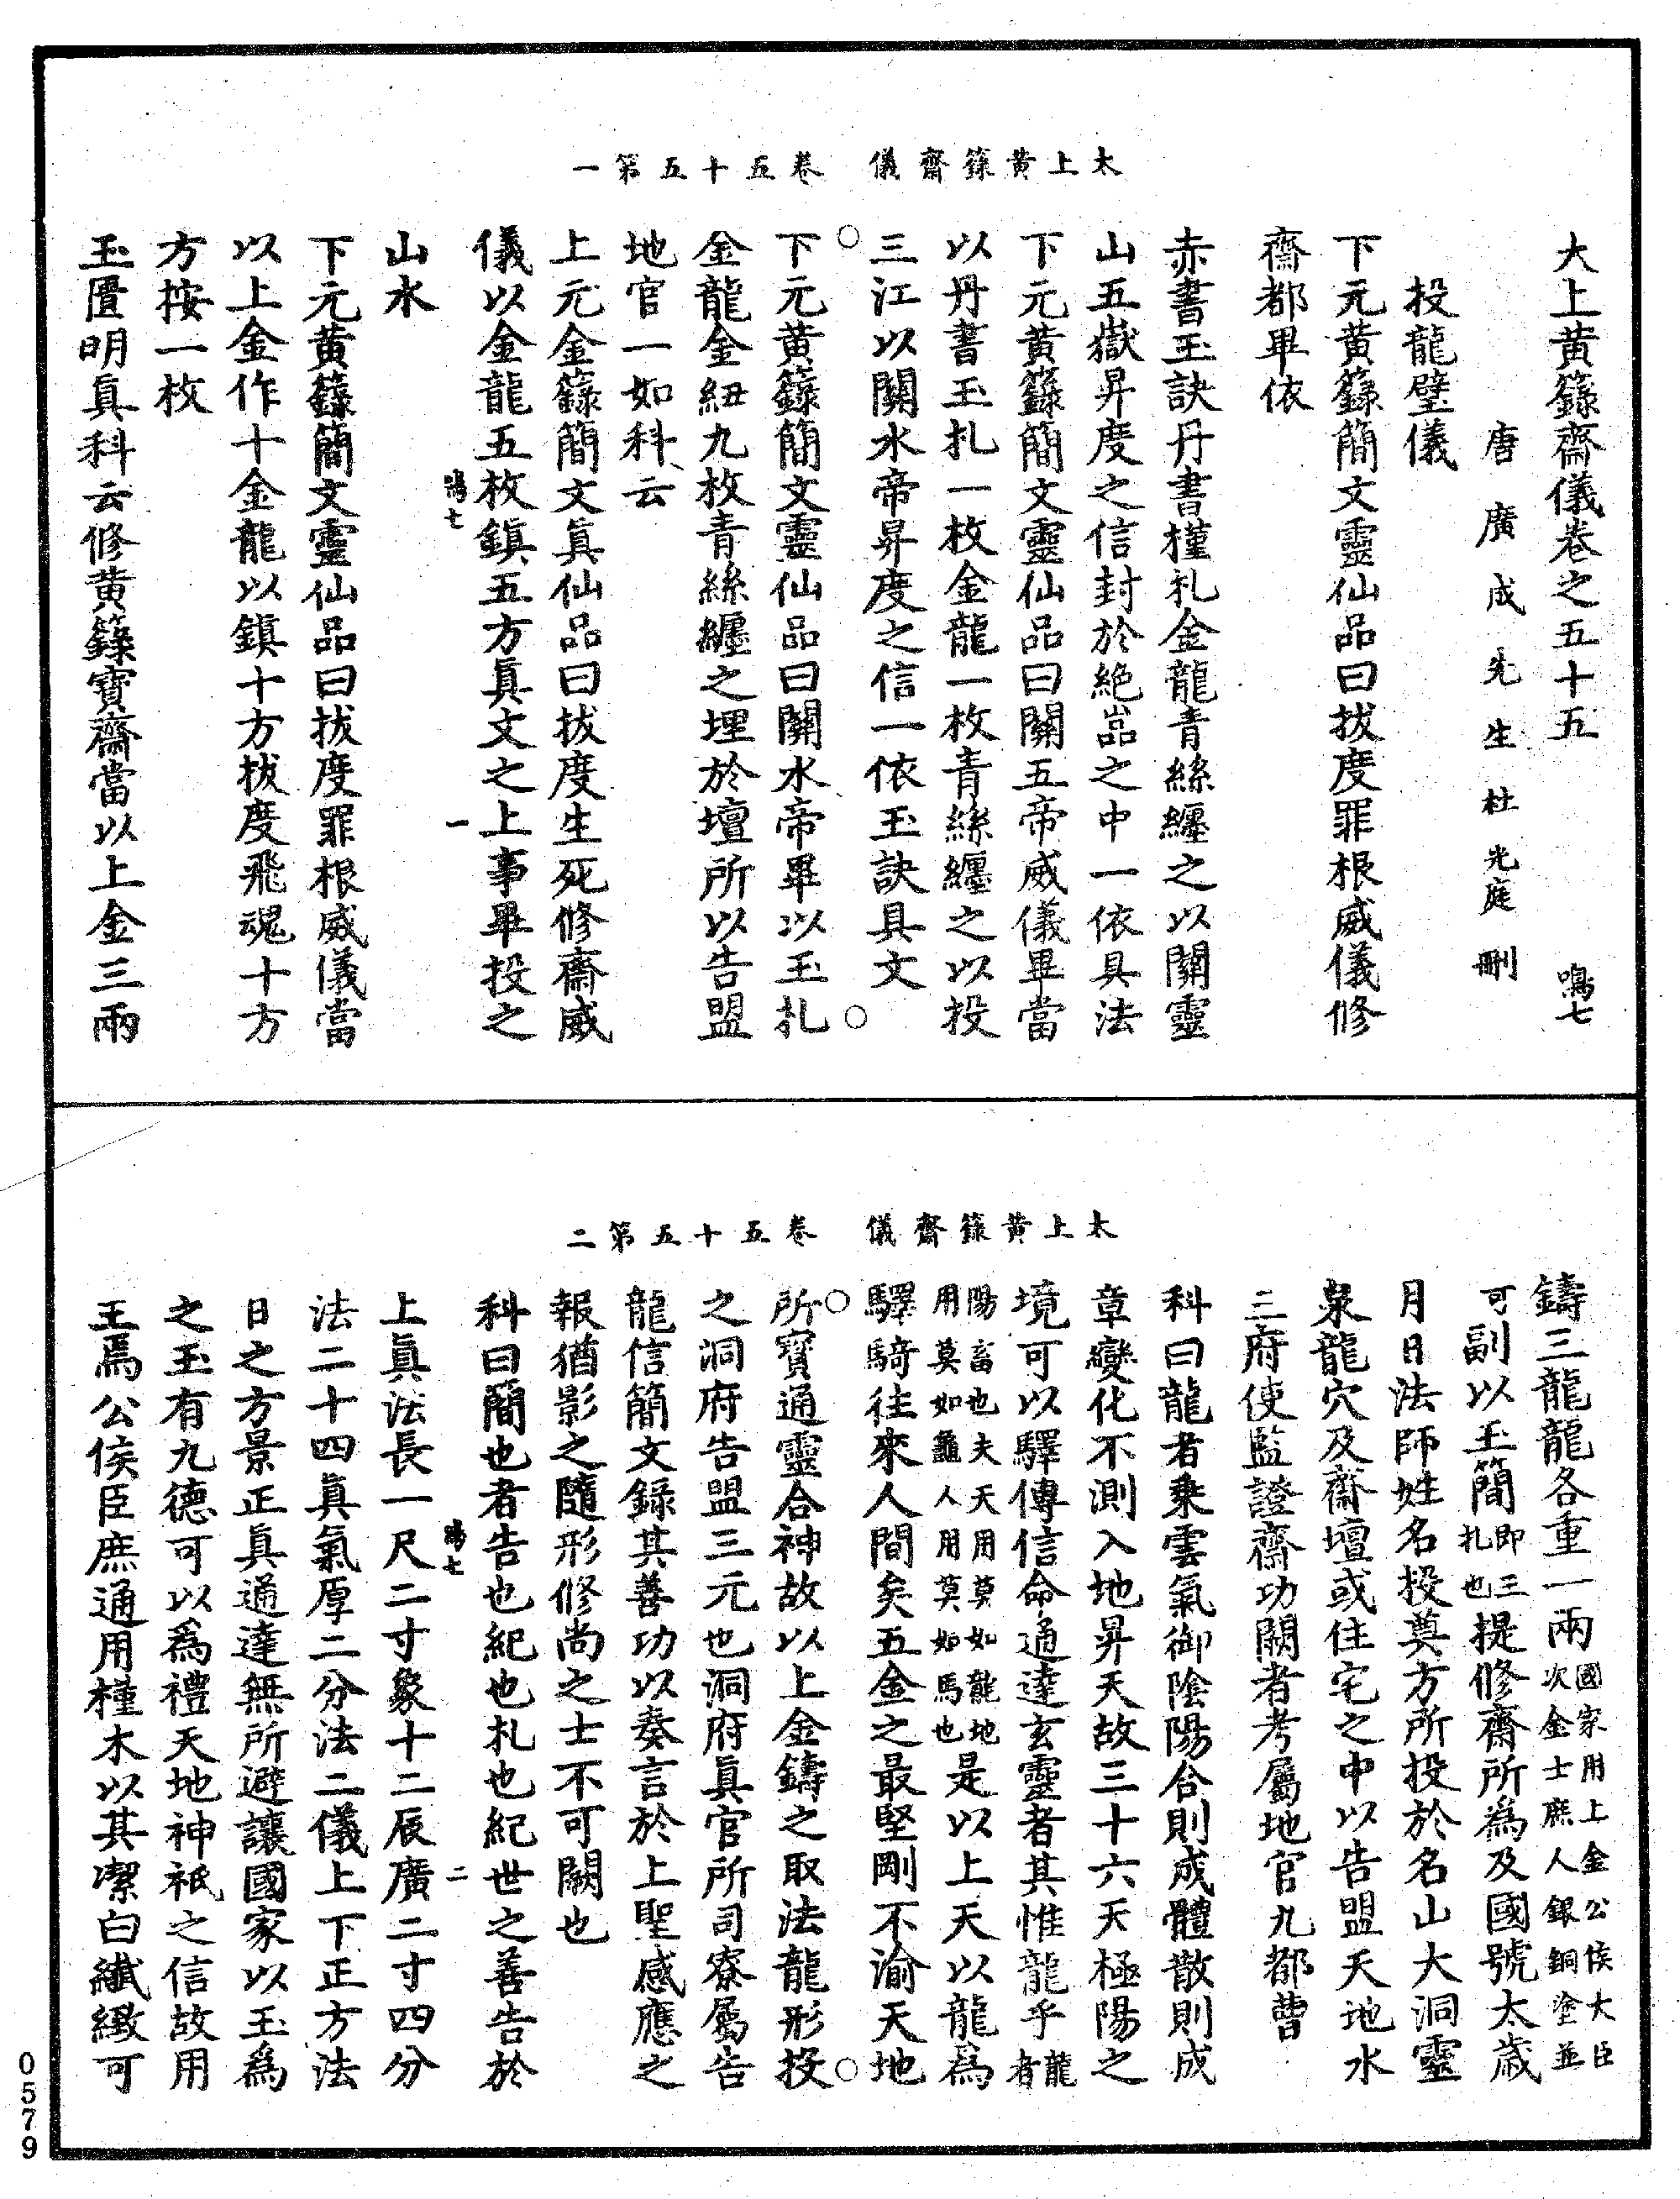 太上黃籙齋儀　卷五十五第一
大上黃籙齋儀卷之五十五　鳴七
唐廣成先生杜光庭刪
投龍璧儀
下元黃籙簡文靈仙品曰拔度罪根威儀修
齋都畢依
赤書玉訣丹書槿札金龍青絲纏之以關靈
山五嶽昇度之信封於絕嵒之中一依具法
下元黃籙簡文靈仙品曰關五帝威儀畢當
以丹書玉札一枚金龍一枚青絲纏之以投
三江以關水帝昇度之信一依玉訣具文
下元黃籙簡文靈仙品曰關水帝畢以玉札
金龍金紐九枚青絲纏之埋於壇所以告盟
地官一如科云
上元金籙簡文真仙品曰拔度生死修齋威
儀以金龍五枚鎮五方真文之上事畢投之
鳴七　一
山水
下元黃籙簡文靈仙品曰拔度罪根威儀當
以上金作十金龍以鎮十方拔度飛魂十方
方按一枚
玉匱明真科云修黃籙寶齋當以上金三兩
太上黃籙齋儀　卷五十五第二
鑄三龍龍各重一兩國家用上金公侯大臣次金士庶人銀銅塗並
可副以玉簡即三札也提修齋所為及國號太歲
月日法師姓名投奠方所投於名山大洞靈
泉龍穴及齋壇或住宅之中以告盟天地水
三府使監證齋功闕者考屬地官九都曹
科曰龍者乘雲氣御陰陽合則成體散則成
章變化不測入地昇天故三十六天極陽之
境可以驛傳信命通達玄靈者其惟龍乎龍者
陽畜也夫天用莫如龍地用莫如馬人用莫如龜也是以上天以龍為
驛騎往來人間矣五金之最堅剛不渝天地
所寶通靈合神故以上金鑄之取法龍形投
之洞府告盟三元也洞府真官所司寮屬告
龍信簡文錄其善功以奏言於上聖感應之
報猶影之隨形修尚之士不可闕也
科曰簡也者告也紀也札也紀世之善告於
鳴七　二
上真法長一尺二寸象十二辰廣二寸四分
法二十四真氣厚二分法二儀上下正方法
日之方景正真通達無所避讓國家以玉為
之玉有九德可以為禮天地神祇之信故用
玉焉公侯臣庶通用槿木以其潔白纖緻可
0579